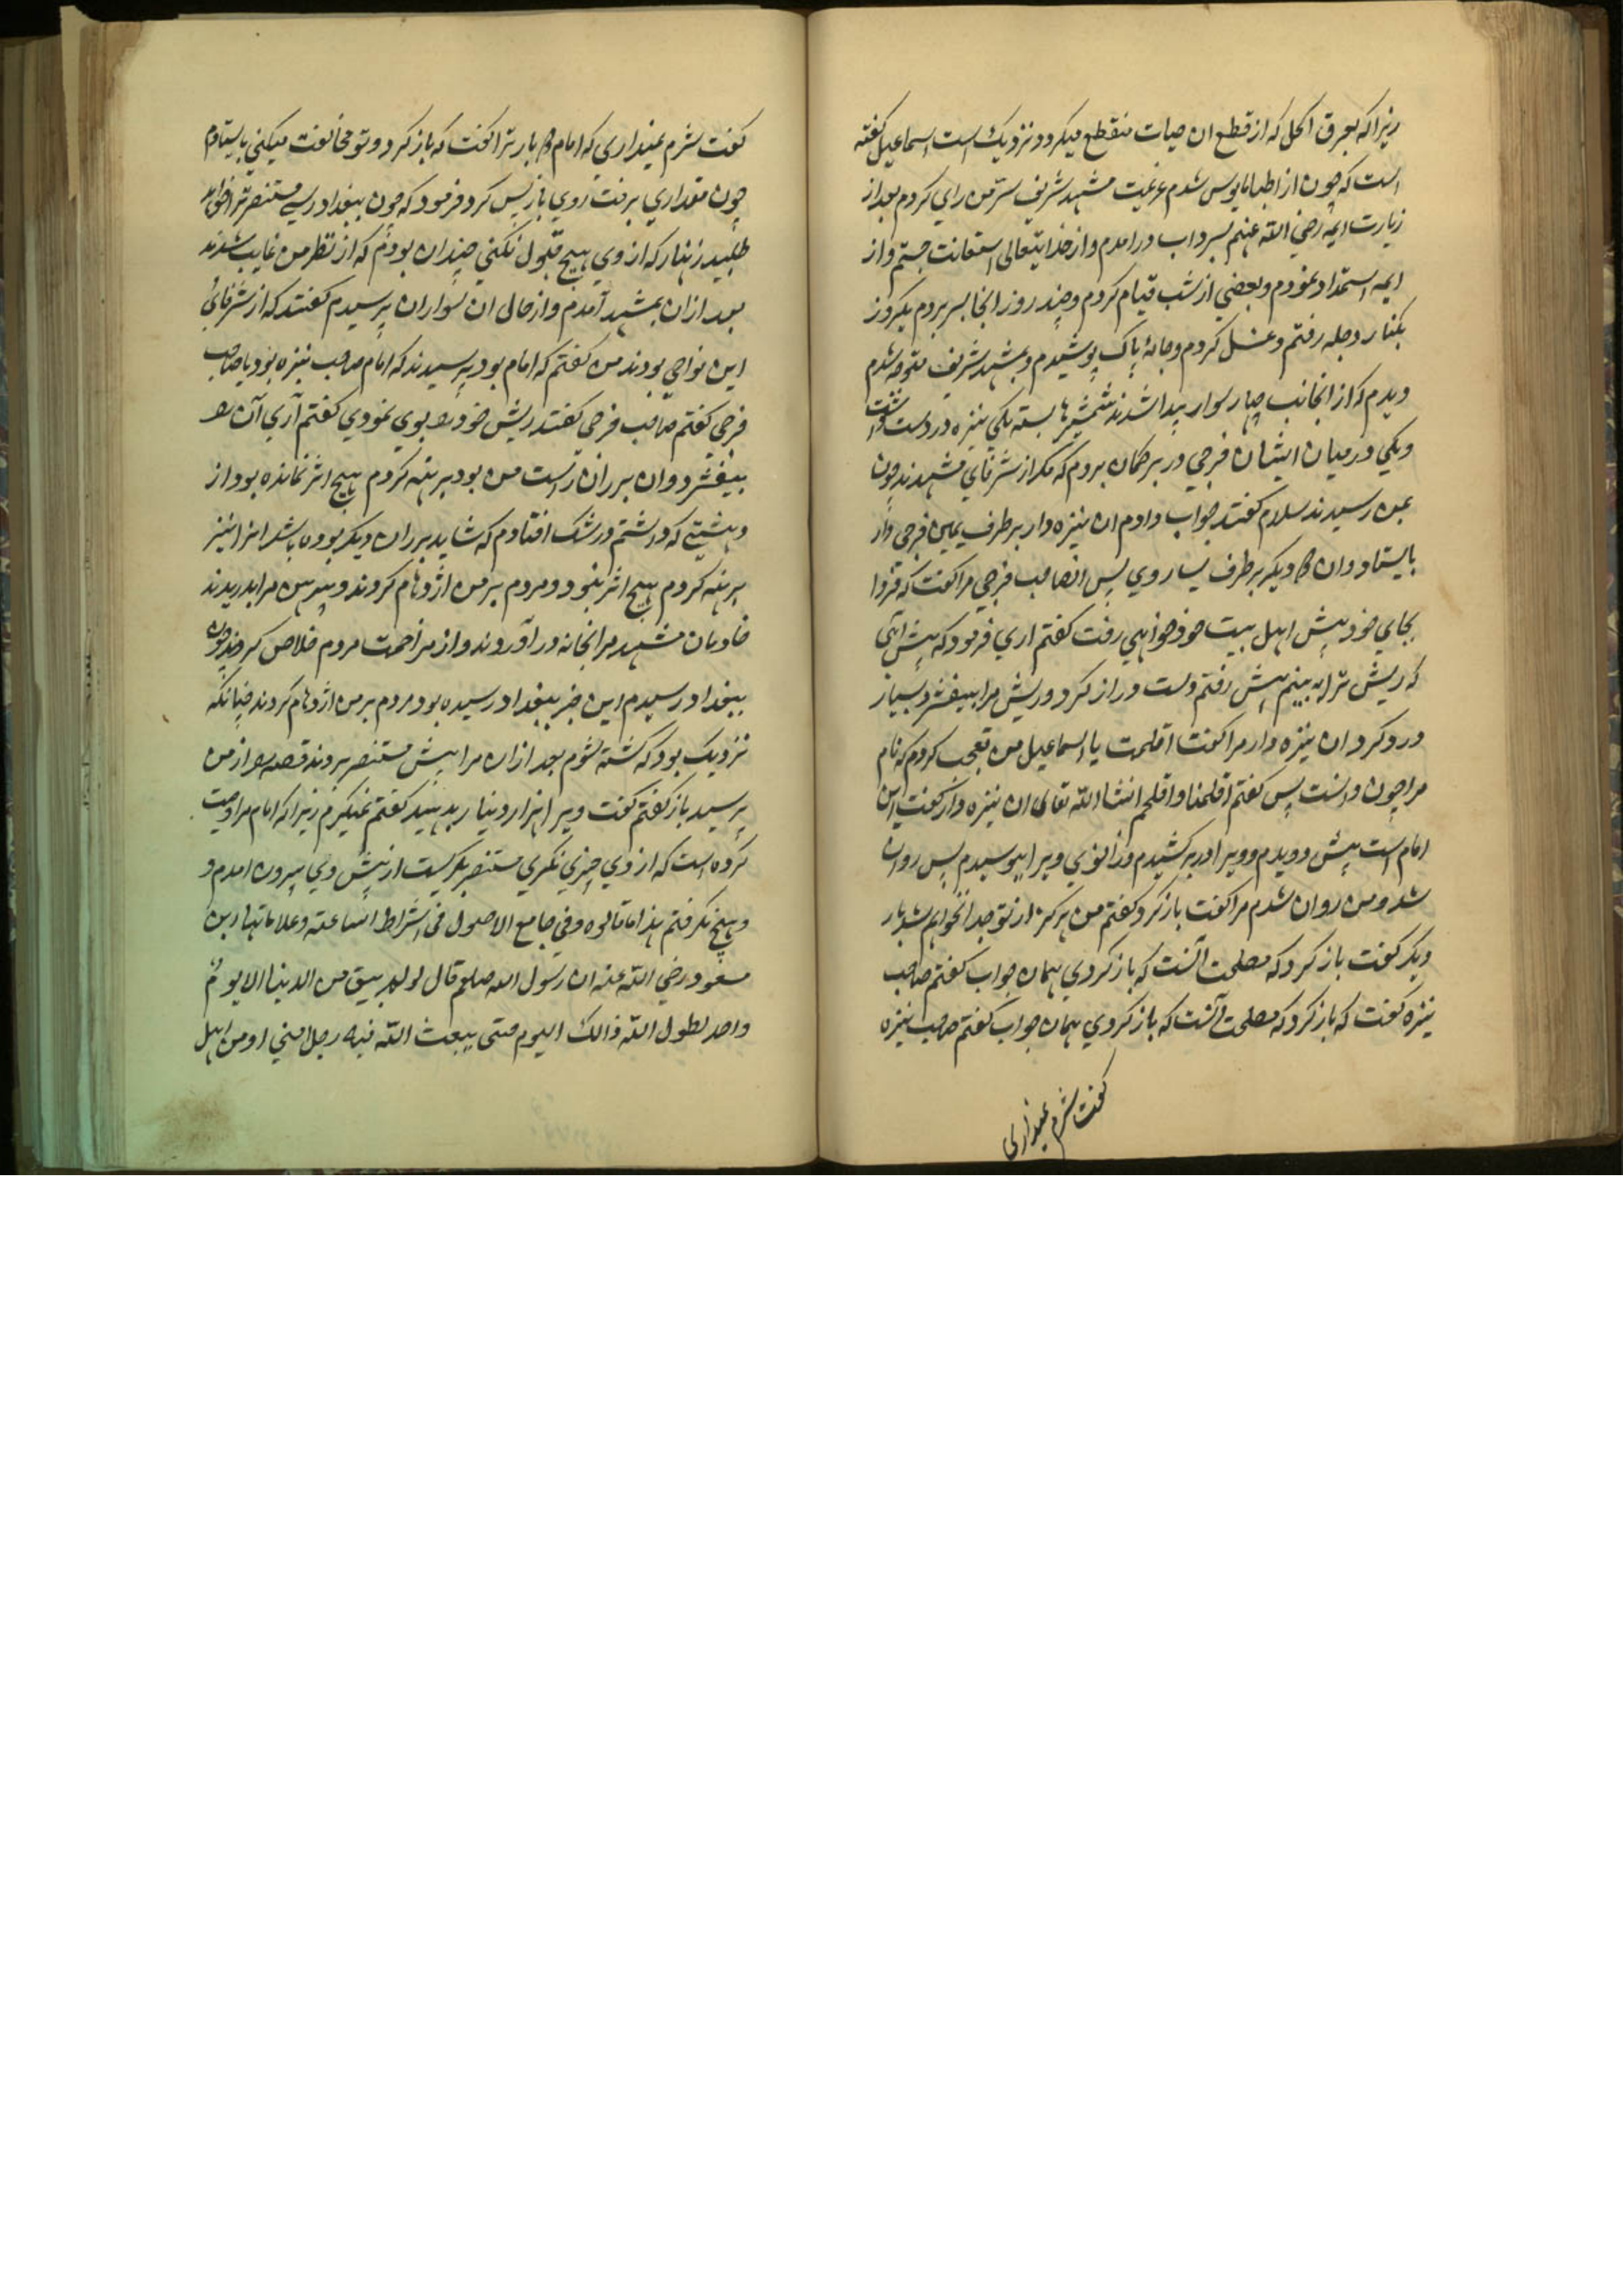 زیرا که بعرق اکحل که از قطع ان حیات منقطع میکردد نزدیک است اسماعیل کفته
است که چون از اطبا مایوس شدم عزیمت مشهد شریف سرّ من رای کردم بعد از
زیارت ایمه رضی الله عنهم بسرداب درامدم و از خدایتعالی استعانت جستم و از
ایمه استمداد نمودم و بعضی از شب قیام کردم و چند روز انجا بسر بردم یکروز
بکنار دجله رفتم و غسل کردم و جامهٔ پاک پوشیدم و بمشهد شریف متوجه شدم
دیدم که از انجانب چهار سوار پیدا شدند شمشیرها بسته یکی نیزه در دست داشت
و یکی در میان ایشان فرجی در بر کمان بردم که مکر از شرفای مشهدند چون
بمن رسیدند سلام کفتند جواب دادم ان نیزه دار بر طرف یمین فرجی دار
بایستاد و ان دو دیکر بر طرف یسار وی پس انصاحب فرجی مرا کفت که فردا
بجای خود پیش اهل بیت خود خواهی رفت کفتم اری فرمود که پیش آی
که ریش ترا به بینم پیش رفتم دست دراز کرد و ریش مرا بیفشرد بسیار
درد کرد ان نیزه دار مرا کفت افلحت یا اسماعیل من تعجب کردم که نام
مرا چون دانست پس کفتم افلحنا و افلحتم انشا الله تعالی ان نیزه دار کفت این
امام است پیش دویدم و ویرا در بر کشیدم و زانوی ویرا ببوسیدم پس روان
شد و من روان شدم مرا کفت باز کرد کفتم من هرکز از تو جدا نخواهم شد بار
دیکر کفت باز کرد که مصلحت آنست که باز کردی همان جواب کفتم صاحب
نیزه کفت که باز کرد که مصلحت آنست که باز کردی همان جواب کفتم صاحب نیزه
کفت شرم نمیداری
کفت شرم نمیداری که امام دو بار ترا کفت که باز کرد و تو مخالفت میکنی بایستادم
چون مقداری برفت روی باز پس کرد و فرمود که چون ببغداد رسی مستنصر ترا خواهد
طلبید زنهار که از وی هیچ قبول نکنی چندان بودم که از نظر من غایب شدند
بعد ازان بمشهد آمدم و از حال ان سواران پرسیدم کفتند که از شرفای
این نواحی بودند من کفتم که امام بود پرسیدند که امام صاحب نیزه بود یا صاحب
فرجی کفتم صاحب فرجی کفتند ریش خود را بوی نمودی کفتم آری آن را
بیفشرد و ان بر ران راست من بود برهنه کردم هیچ اثر نمانده بود از
دهشتی که داشتم در شک افتادم که شاید بر ران دیکر بوده باشد انرا نیز
برهنه کردم هیچ اثر نبود و مردم بر من ازدحام کردند و پیرهن مرا بدریدند
خادمان مشهد مرا بخانه در آوردند و از مزاحمت مردم خلاص کردند چون
ببغداد رسیدم این خبر ببغداد رسیده بود مردم بر من ازدحام کردند چنانکه
نزدیک بود که کشته شوم بعد ازان مرا پیش مستنصر بردند قصه را از من
پرسید باز کفتم کفت ویرا هزار دینار بدهید کفتم نمیکیرم زیرا که امام مرا وصیت
کرده است که از وی چیزی نکیری مستنصر بکریست از پیش وی بیرون امدم و
و هیچ نکرفتم هذا ما قالوه و فی جامع الاصول فی اشراط الساعة و علاماتها ابن
مسعود رضی الله عنه ان رسول الله صلعم قال لو لم یبق من الدنیا الا یوم
واحد لطول الله ذالک الیوم حتی یبعث الله فیه رجل منی او من اهل